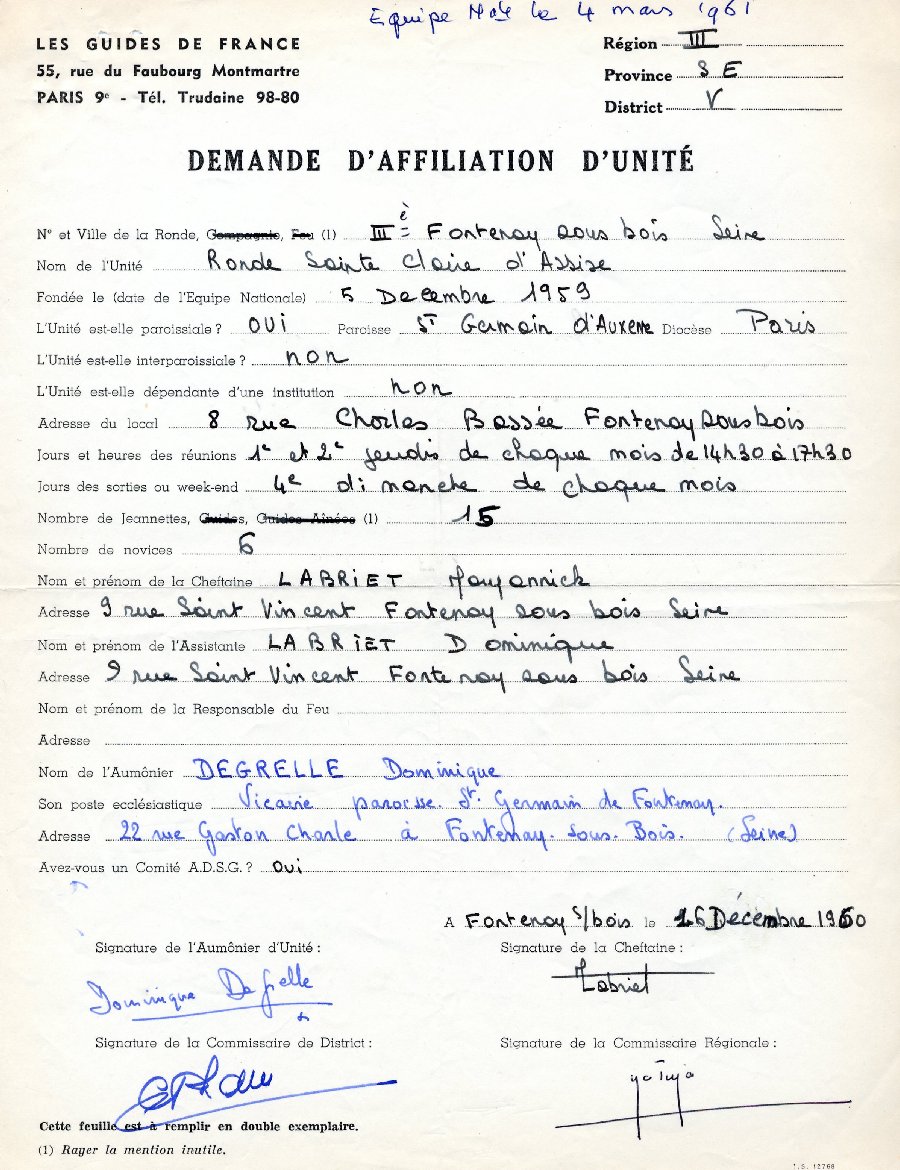 Equipe Nale le 4 mars 1961
LES GUIDES DE FRANCE
55, rue du Faubourg Montmartre
PARIS 9e - Tél. Trudaine 98-80
Région III
Province S E
District V
DEMANDE D'AFFILIATION D'UNITÉ
N° et Ville de la Ronde, Compagnie, Feu (1) IIIè Fontenay sous bois Seine
Nom de l'Unité Ronde Sainte Claire d'Assise
Fondée le (date de l'Equipe Nationale) 5 Decembre 1959
L'Unité est-elle paroissiale ? OUI Paroisse ST Germain d'Auxerre Diocèse Paris
L'Unité est-elle interparoissiale ? non
L'Unité est-elle dépendante d'une institution non
Adresse du local 8 rue Charles Bassée Fontenay sous bois
Jours et heures des réunions 1e et 2e jeudis de chaque mois de 14h30 à 17h30
Jours des sorties ou week-end 4e dimanche de chaque mois
Nombre de Jeannettes, Guides, Guides Aînées (1) 15
Nombre de novices 6
Nom et prénom de la Cheftaine LABRIET Mayannick
Adresse 9 rue Saint Vincent Fontenay sous bois Seine
Nom et prénom de l'Assistante LABRIET Dominique
Adresse 9 rue Saint Vincent Fontenay sous bois Seine
Nom et prénom de la Responsable du Feu
Adresse
Nom de l'Aumônier DEGRELLE Dominique
Son poste ecclésiastique Vicaire paroisse St. Germain de Fontenay.
Adresse 22 rue Gaston Charle à Fontenay-sous-Bois. (Seine)
Avez-vous un Comité A.D.S.G. ? Oui
A Fontenay s/bois le 16 Décembre 1960
Signature de l'Aumônier d'Unité :
Signature de la Cheftaine :
Dominique Degrelle
Labriet
Signature de la Commissaire de District :
Signature de la Commissaire Régionale :
Cette feuille est à remplir en double exemplaire.
(1) Rayer la mention inutile.
I.S. 12768